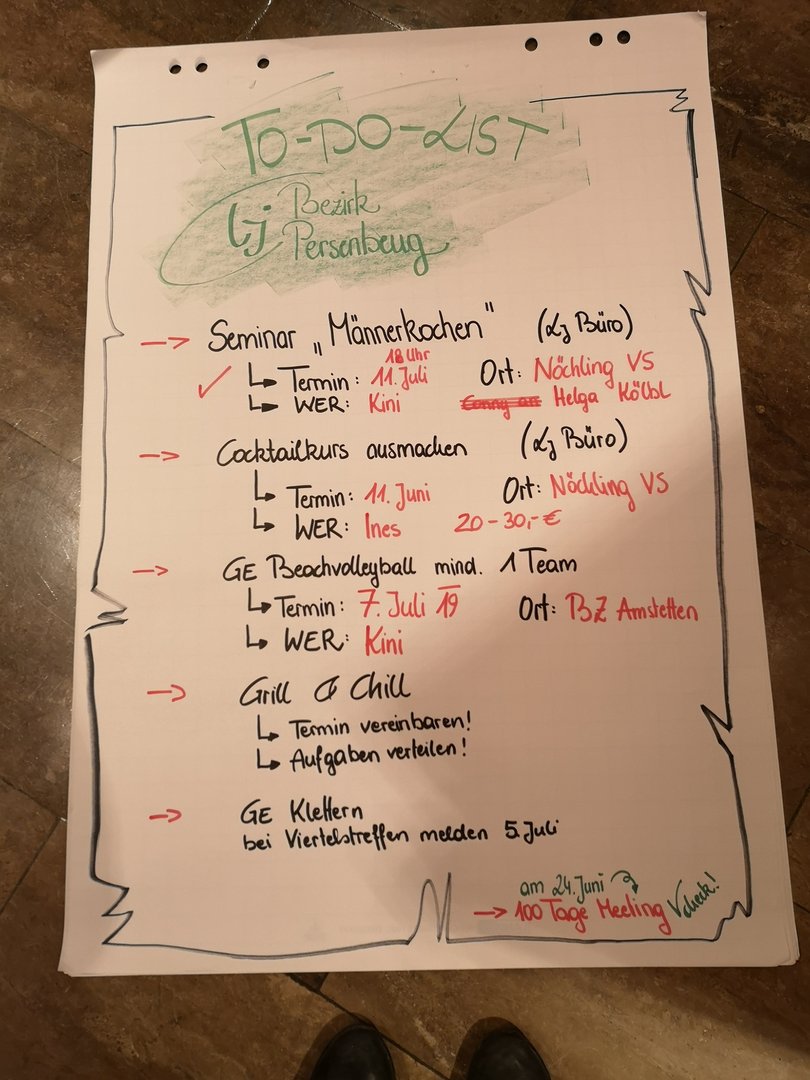 TO-DO-LIST
Lj Bezirk
Persenbeug
→ Seminar „Männerkochen" (Lj Büro)
18 Uhr
✓ ↳ Termin: 11. Juli Ort: Nöchling VS
↳ WER: Kini Helga Kölbl
→ Cocktailkurs ausmachen (Lj Büro)
↳ Termin: 11. Juni Ort: Nöchling VS
↳ WER: Ines 20-30,-€
→ GE Beachvolleyball mind. 1 Team
↳ Termin: 7. Juli 19 Ort: BZ Amstetten
↳ WER: Kini
→ Grill & Chill
↳ Termin vereinbaren!
↳ Aufgaben verteilen!
→ GE Klettern
bei Viertelstreffen melden 5. Juli
am 24. Juni
→ 100 Tage Meeting ✓check!